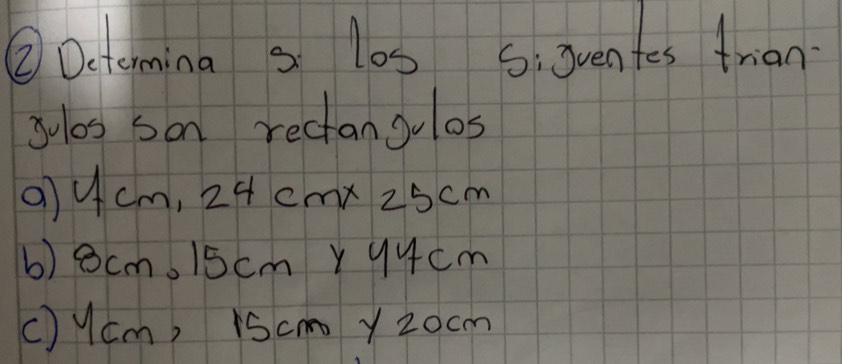 ② Determina si los siguentes trian-
gulos son rectangulos
a) 4cm, 24 cm y 25cm
b) 8cm, 15cm y 44cm
c) 4cm, 15cm y 20cm